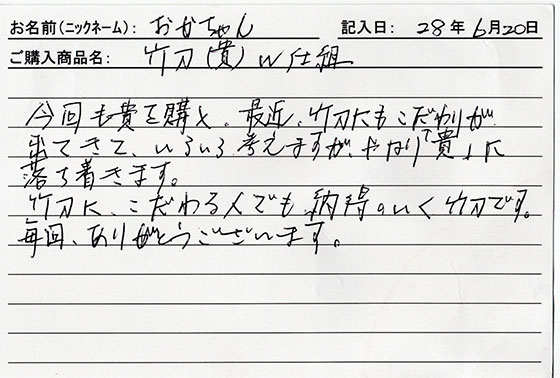 お名前(ニックネーム): おかちゃん 記入日: 28年6月20日
ご購入商品名: 竹刀(貴)W仕組
今回も貴を購入。最近、竹刀にもこだわりが
出てきて、いろいろ考えますが、やはり「貴」に
落ち着きます。
竹刀に、こだわる人でも、納得のいく竹刀です。
毎回、ありがとうございます。